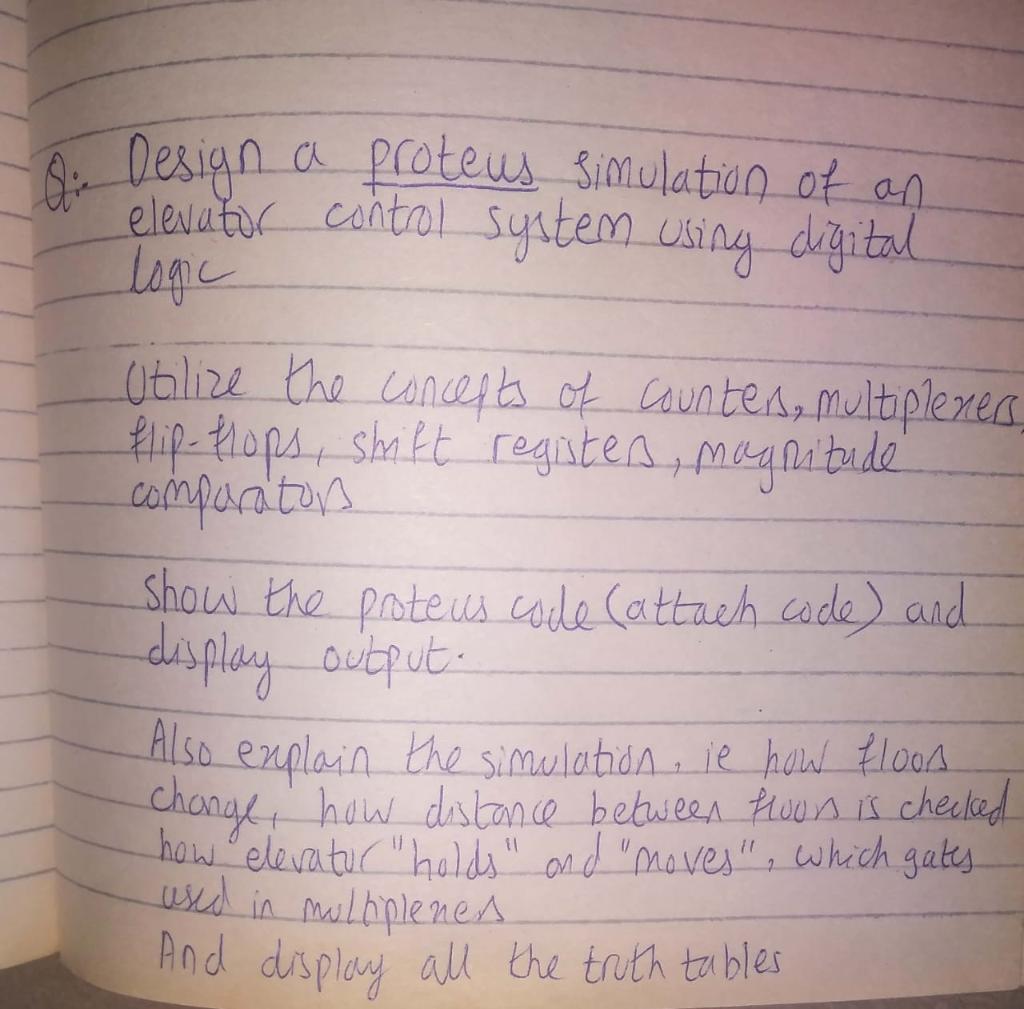 Q:- Design a proteus simulation of an
elevator control system using digital
logic
Utilize the concepts of counters, multiplexers,
flip-flops, shift registers, magnitude
comparators
show the proteus code (attach code) and
display output.
Also explain the simulation, ie how floors
change, how distance between floors is checked
how elevator "holds" and "moves", which gates
used in multiplexers
And display all the truth tables